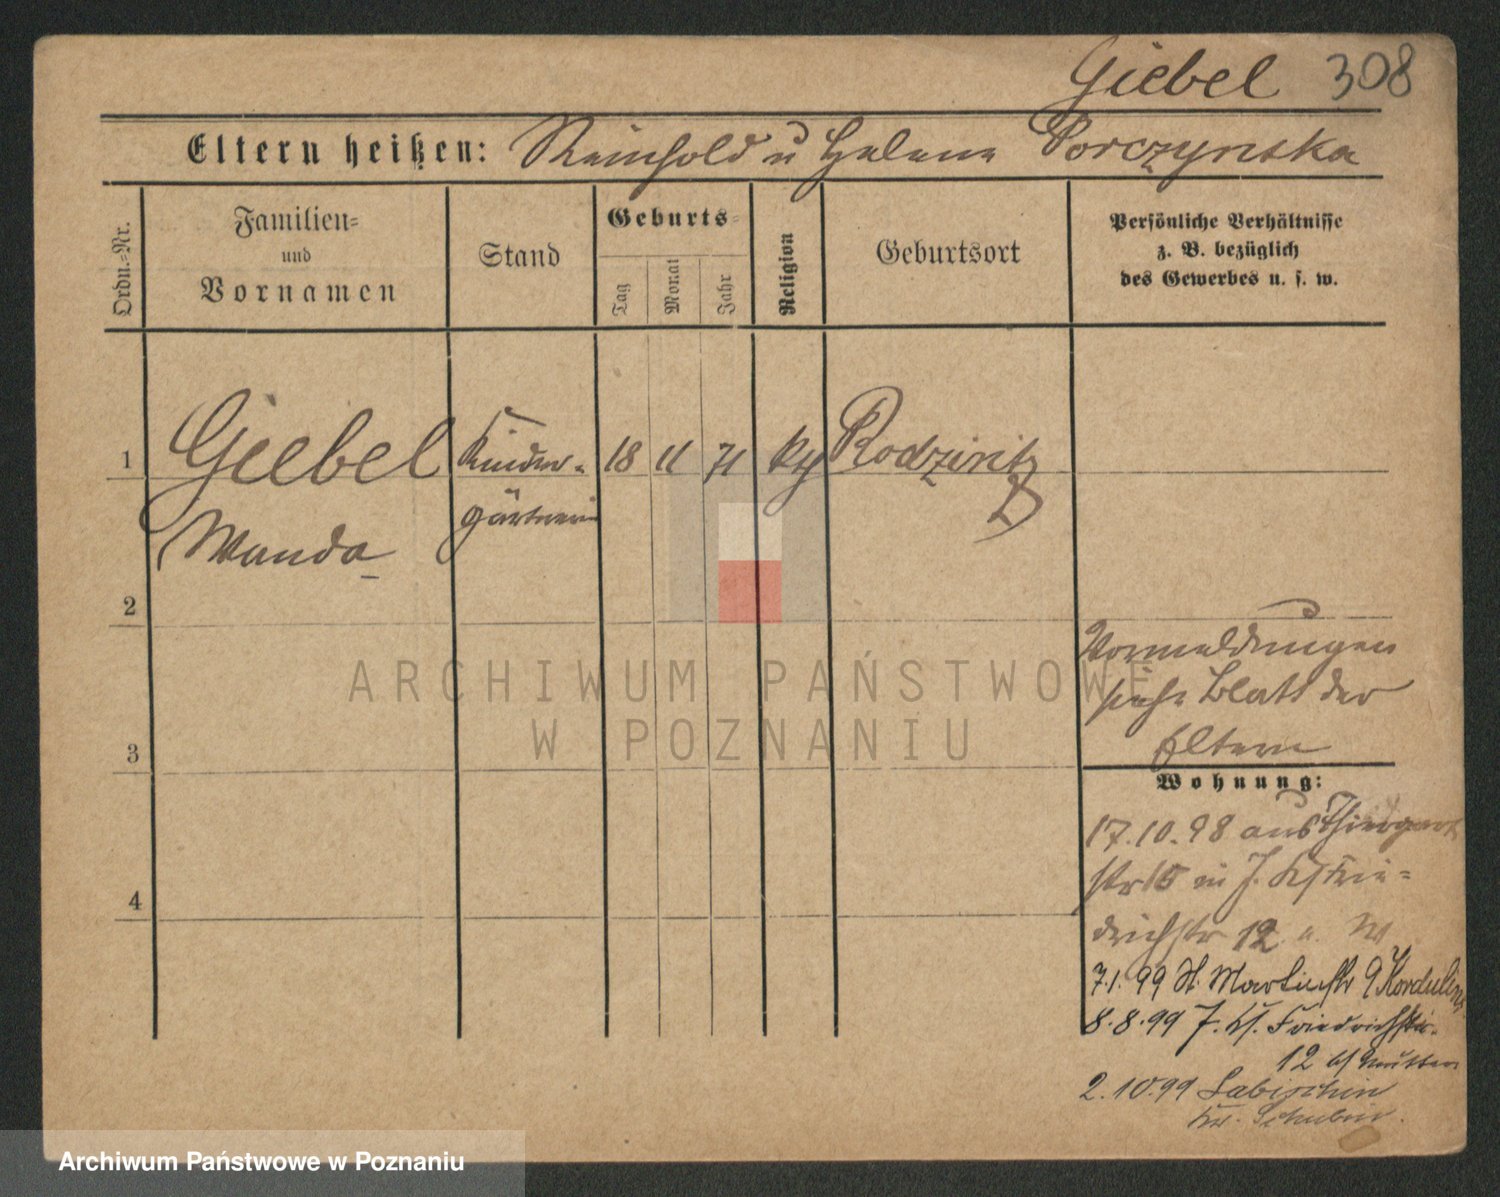 Giebel 308
Eltern heißen: Reinhold u Helene Porczynska
Ordn.-Nr.
Familien- und Vornamen
Stand
Geburts-
Tag
Monat
Jahr
Religion
Geburtsort
Persönliche Verhältnisse
z. B. bezüglich
des Gewerbes u. s. w.
1
Giebel
Wanda
Kinder-
gärtnerin
18
11
71
Rodzinitz
2
3
4
Vormeldungen
siehe Blatt der
Eltern
Wohnung:
17.10.98 aus Thiergart
str 15 in J. Frie-
drichstr 12
7.1.99 St. Martinstr 9
8.8.99 J. Friedrichstr.
12 b/ Mutter
2.10.99 Labischin
Kr. Schubin.
ARCHIWUM PAŃSTWOWE
W POZNANIU
Archiwum Państwowe w Poznaniu